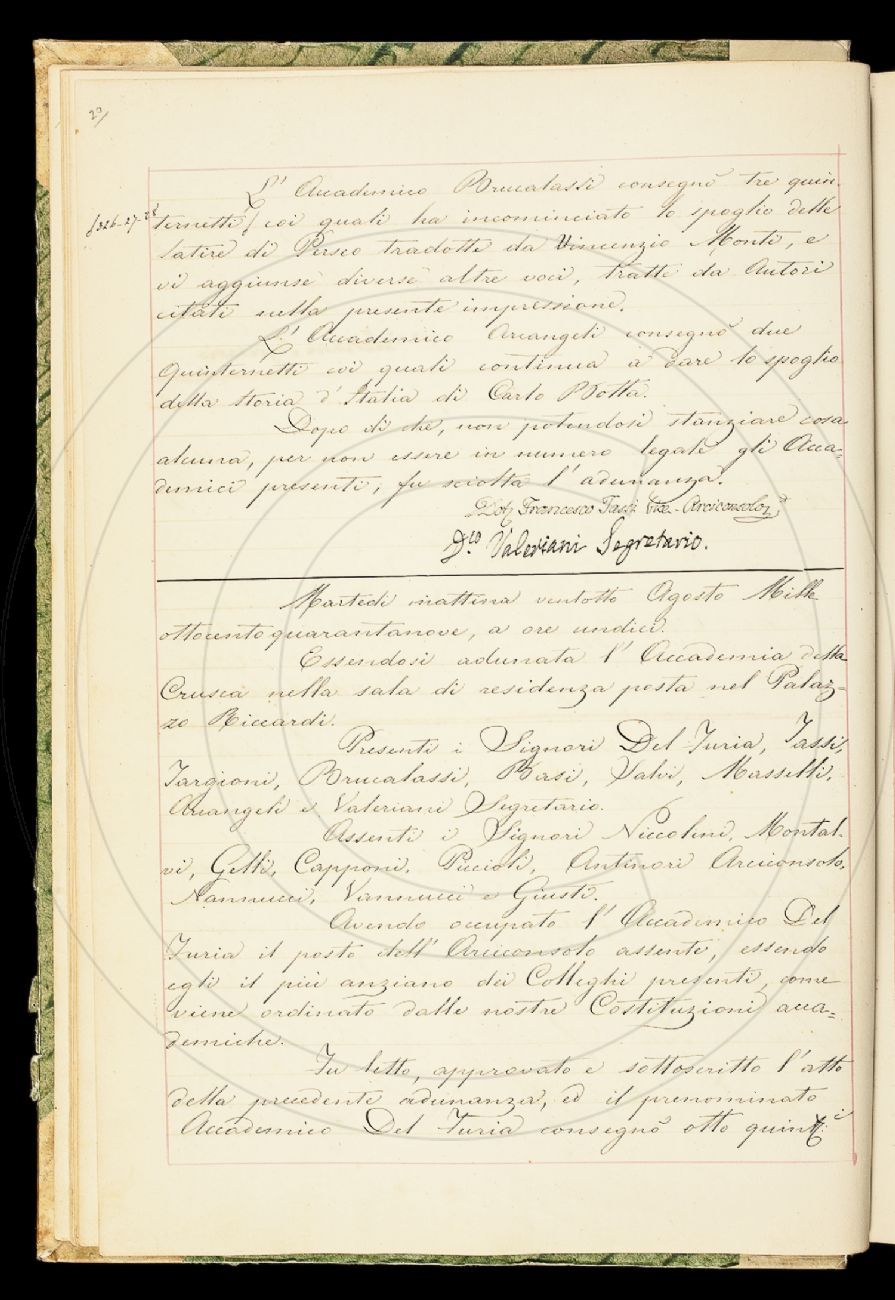 20/
L' Accademico Brucalassi consegnò tre quin-
f 326-27-28
ternetti / coi quali ha incominciato lo spoglio delle
Satire di Perseo tradotte da Vincenzio Monti, e
vi aggiunse diverse altre voci, tratte da Autori
citati nella presente impressione.
L' Accademico Arcangeli consegnò due
Quinternetti coi quali continua a dare lo spoglio
della Storia d' Italia di Carlo Botta.
Dopo di che, non potendosi stanziare cosa
alcuna, per non essere in numero legale gli Acca=
demici presenti, fu sciolta l' adunanza.
Dot. Francesco Tassi Vice-Arciconsolo
D.co Valeriani Segretario.
Martedì mattina ventotto Agosto Mille
ottocentoquarantanove, a ore undici.
Essendosi adunata l' Accademia della
Crusca nella sala di residenza posta nel Palaz=
zo Riccardi.
Presenti i Signori Del Furia, Tassi,
Targioni, Brucalassi, Basi, Salvi, Masselli,
Arcangeli e Valeriani Segretario.
Assenti i Signori Niccolini, Montal-
vi, Gelli, Capponi, Puccioli, Antinori Arciconsolo,
Nannucci, Vannucci e Giusti.
Avendo occupato l' Accademico Del
Furia il posto dell' Arciconsolo assente, essendo
egli il più anziano dei Colleghi presenti, come
viene ordinato dalle nostre Costituzioni acca=
demiche.
Fu letto, approvato e sottoscritto l' atto
della precedente adunanza, ed il prenominato
Accademico Del Furia consegnò otto quint:i